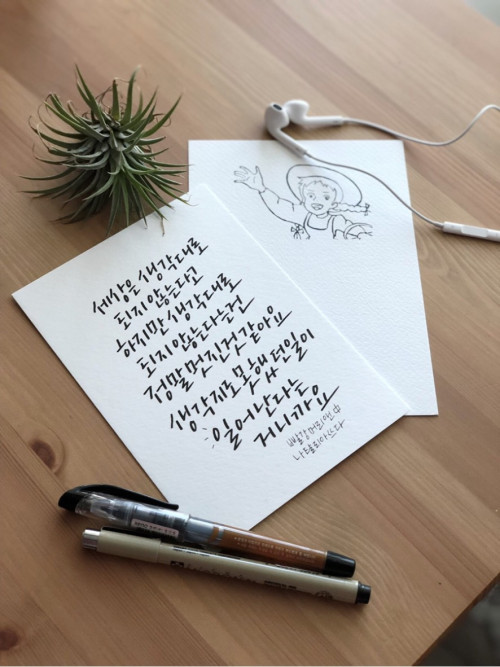 세상은 생각대로
되지 않는다고
하지만 생각대로
되지 않는다는건
정말 멋진것 같아요
생각지도 못했던일이
일어난다는
거니까요
빨강머리앤 中